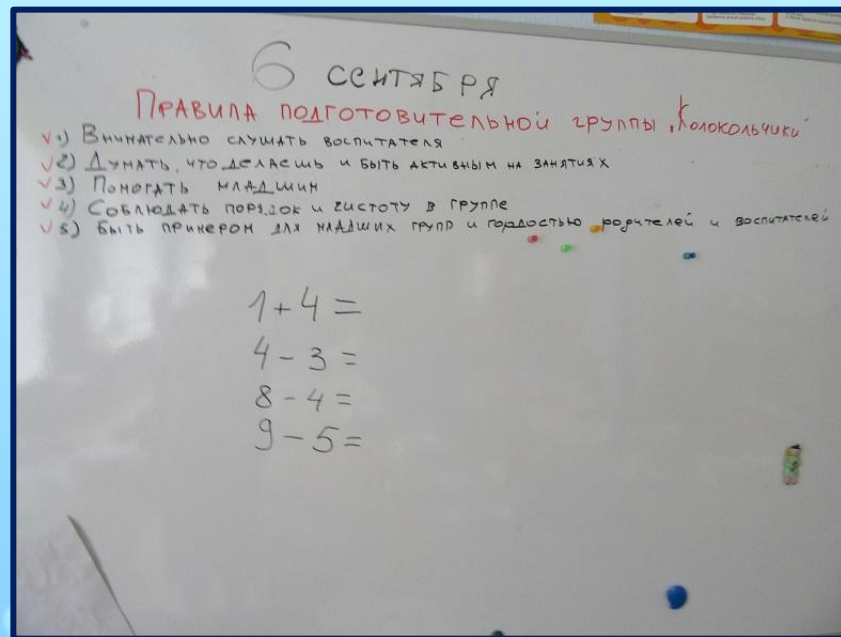 6 СЕНТЯБРЯ
ПРАВИЛА ПОДГОТОВИТЕЛЬНОЙ ГРУППЫ „Колокольчики“
1) ВНИМАТЕЛЬНО СЛУШАТЬ ВОСПИТАТЕЛЯ
2) ДУМАТЬ, ЧТО ДЕЛАЕШЬ И БЫТЬ АКТИВНЫМ НА ЗАНЯТИЯХ
3) ПОМОГАТЬ МЛАДШИМ
4) СОБЛЮДАТЬ ПОРЯДОК И ЧИСТОТУ В ГРУППЕ
5) БЫТЬ ПРИМЕРОМ ДЛЯ МЛАДШИХ ГРУПП И ГОРДОСТЬЮ РОДИТЕЛЕЙ И ВОСПИТАТЕЛЕЙ
1 + 4 =
4 - 3 =
8 - 4 =
9 - 5 =